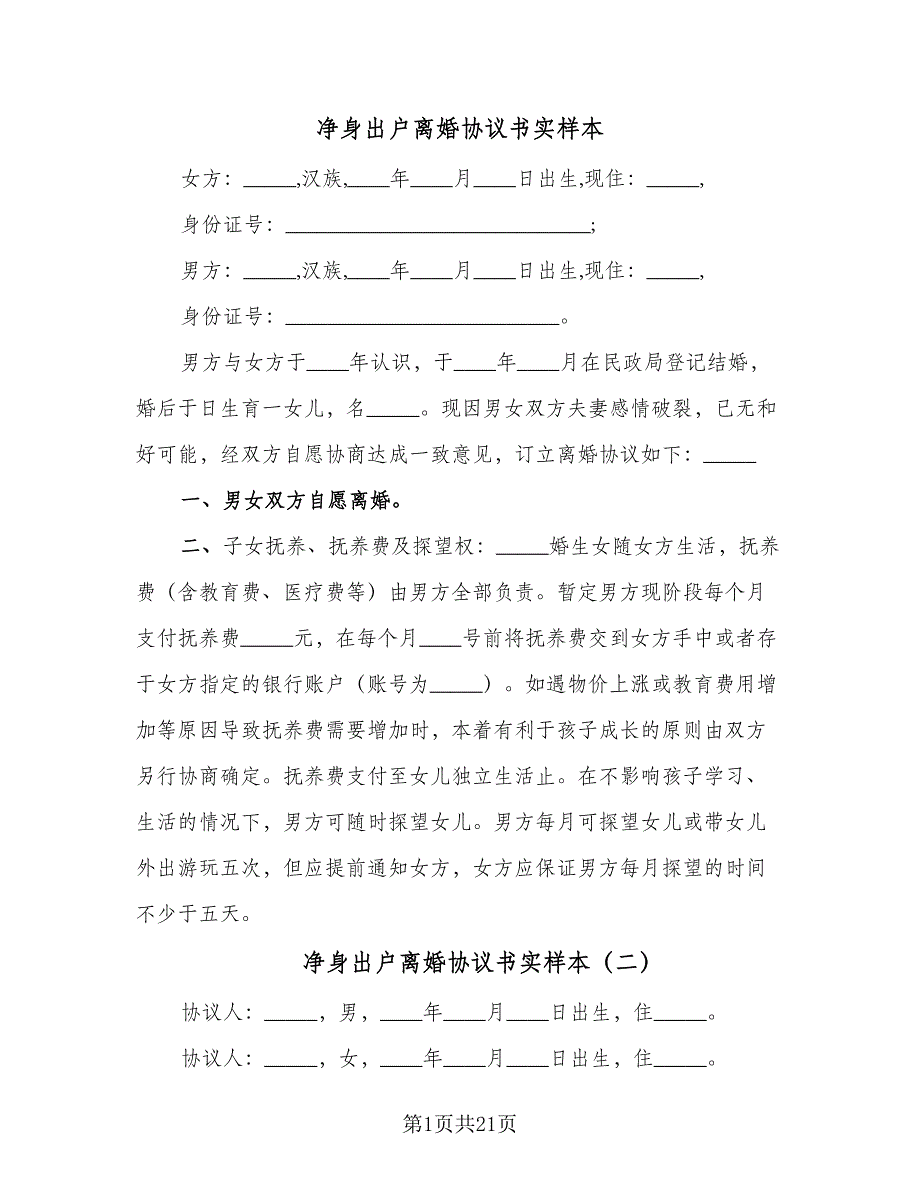 净身出户离婚协议书实样本
女方：_____,汉族,____年____月____日出生,现住：_____,
身份证号：_____________________________;
男方：_____,汉族,____年____月____日出生,现住：_____,
身份证号：__________________________。
男方与女方于____年认识，于____年____月在民政局登记结婚，
婚后于日生育一女儿，名_____。现因男女双方夫妻感情破裂，已无和
好可能，经双方自愿协商达成一致意见，订立离婚协议如下：_____
一、男女双方自愿离婚。
二、子女抚养、抚养费及探望权：_____婚生女随女方生活，抚养
费（含教育费、医疗费等）由男方全部负责。暂定男方现阶段每个月
支付抚养费_____元，在每个月____号前将抚养费交到女方手中或者存
于女方指定的银行账户（账号为_____）。如遇物价上涨或教育费用增
加等原因导致抚养费需要增加时，本着有利于孩子成长的原则由双方
另行协商确定。抚养费支付至女儿独立生活止。在不影响孩子学习、
生活的情况下，男方可随时探望女儿。男方每月可探望女儿或带女儿
外出游玩五次，但应提前通知女方，女方应保证男方每月探望的时间
不少于五天。
净身出户离婚协议书实样本（二）
协议人：_____，男，____年____月____日出生，住_____。
协议人：_____，女，____年____月____日出生，住_____。
第1页共21页